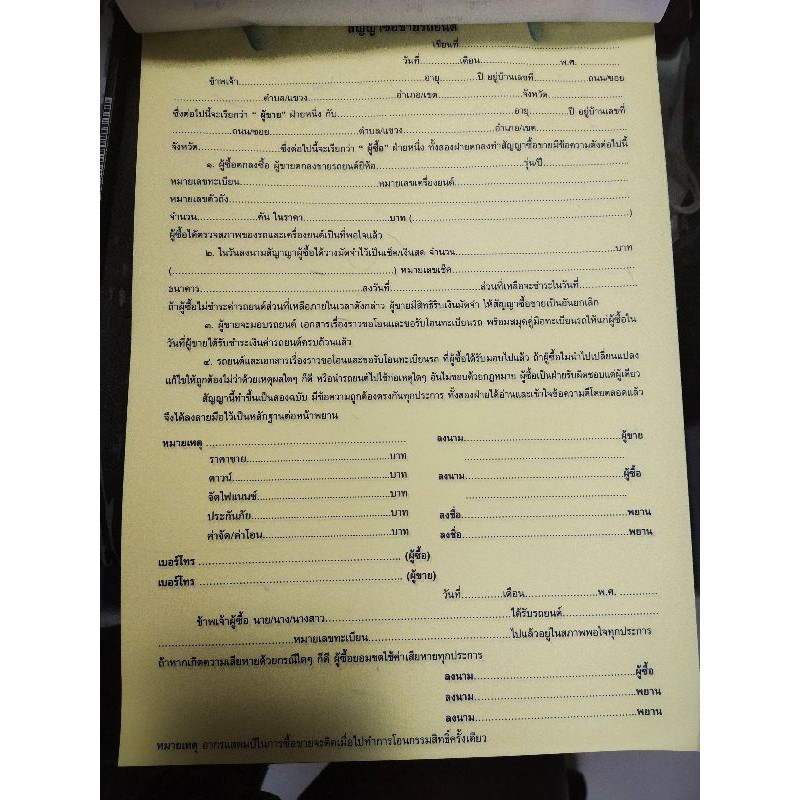 สัญญาซื้อขายรถยนต์
เขียนที่............................................
วันที่.............เดือน..........................พ.ศ. .............
ข้าพเจ้า............................................................อายุ............ปี อยู่บ้านเลขที่...................ถนน/ซอย
..............................ตำบล/แขวง..............................อำเภอ/เขต............................จังหวัด..........................
ซึ่งต่อไปนี้จะเรียกว่า “ ผู้ขาย” ฝ่ายหนึ่ง กับ............................................................อายุ.............ปี อยู่บ้านเลขที่
...................ถนน/ซอย..............................ตำบล/แขวง..............................อำเภอ/เขต..............................
จังหวัด...........................ซึ่งต่อไปนี้จะเรียกว่า “ ผู้ซื้อ” ฝ่ายหนึ่ง ทั้งสองฝ่ายตกลงทำสัญญาซื้อขายมีข้อความดังต่อไปนี้
๑. ผู้ซื้อตกลงซื้อ ผู้ขายตกลงขายรถยนต์ยี่ห้อ..................................................รุ่น/ปี............................
หมายเลขทะเบียน..............................................หมายเลขเครื่องยนต์..............................................
หมายเลขตัวถัง....................................................................................................
จำนวน....................คัน ในราคา.............................บาท (............................................................)
ผู้ซื้อได้ตรวจสภาพของรถและเครื่องยนต์เป็นที่พอใจแล้ว
๒. ในวันลงนามสัญาญาผู้ซื้อได้วางมัดจำไว้เป็นเช็ค/เงินสด จำนวน..................................................บาท
(............................................................) หมายเลขเช็ค..................................................
ธนาคาร..................................................ลงวันที่..............................ส่วนที่เหลือจะชำระในวันที่....................
ถ้าผู้ซื้อไม่ชำระค่ารถยนต์ส่วนที่เหลือภายในเวลาดังกล่าว ผู้ขายมีสิทธิริบเงินมัดจำ ให้สัญญาซื้อขายเป็นอันยกเลิก
๓. ผู้ขายจะมอบรถยนต์ เอกสารเรื่องราวขอโอนและขอรับโอนทะเบียนรถ พร้อมสมุดคู่มือทะเบียนรถให้แก่ผู้ซื้อใน
วันที่ผู้ขายได้รับชำระเงินค่ารถยนต์ครบถ้วนแล้ว
๔. รถยนต์และเอกสารเรื่องราวขอโอนและขอรับโอนทะเบียนรถ ที่ผู้ซื้อได้รับมอบไปแล้ว ถ้าผู้ซื้อไม่นำไปเปลี่ยนแปลง
แก้ไขให้ถูกต้องไม่ว่าด้วยเหตุผลใดๆ ก็ดี หรือนำรถยนต์ไปใช้ก่อเหตุใดๆ อันไม่ชอบด้วยกฎหมาย ผู้ซื้อเป็นฝ่ายรับผิดชอบแต่ผู้เดียว
สัญญานี้ทำขึ้นเป็นสองฉบับ มีข้อความถูกต้องตรงกันทุกประการ ทั้งสองฝ่ายได้อ่านและเข้าใจข้อความดีโดยตลอดแล้ว
จึงได้ลงลายมือไว้เป็นหลักฐานต่อหน้าพยาน
หมายเหตุ ..................................................
ราคาขาย........................................บาท
ดาวน์........................................บาท
จัดไฟแนนซ์........................................บาท
ประกันภัย........................................บาท
ค่าจัด/ค่าโอน........................................บาท
ลงนาม........................................ผู้ขาย
........................................
ลงนาม........................................ผู้ซื้อ
........................................
ลงชื่อ........................................พยาน
ลงชื่อ........................................พยาน
เบอร์โทร .................................................. (ผู้ซื้อ)
เบอร์โทร .................................................. (ผู้ขาย)
วันที่.............เดือน......................พ.ศ. .............
ข้าพเจ้าผู้ซื้อ นาย/นาง/นางสาว..................................................ได้รับรถยนต์.........................
..............................หมายเลขทะเบียน........................................ไปแล้วอยู่ในสภาพพอใจทุกประการ
ถ้าหากเกิดความเสียหายด้วยกรณีใดๆ ก็ดี ผู้ซื้อยอมชดใช้ค่าเสียหายทุกประการ
ลงนาม........................................ผู้ซื้อ
ลงนาม........................................พยาน
ลงนาม........................................พยาน
หมายเหตุ อากรแสตมป์ในการซื้อขายจะติดเมื่อไปทำการโอนกรรมสิทธิ์ครั้งเดียว